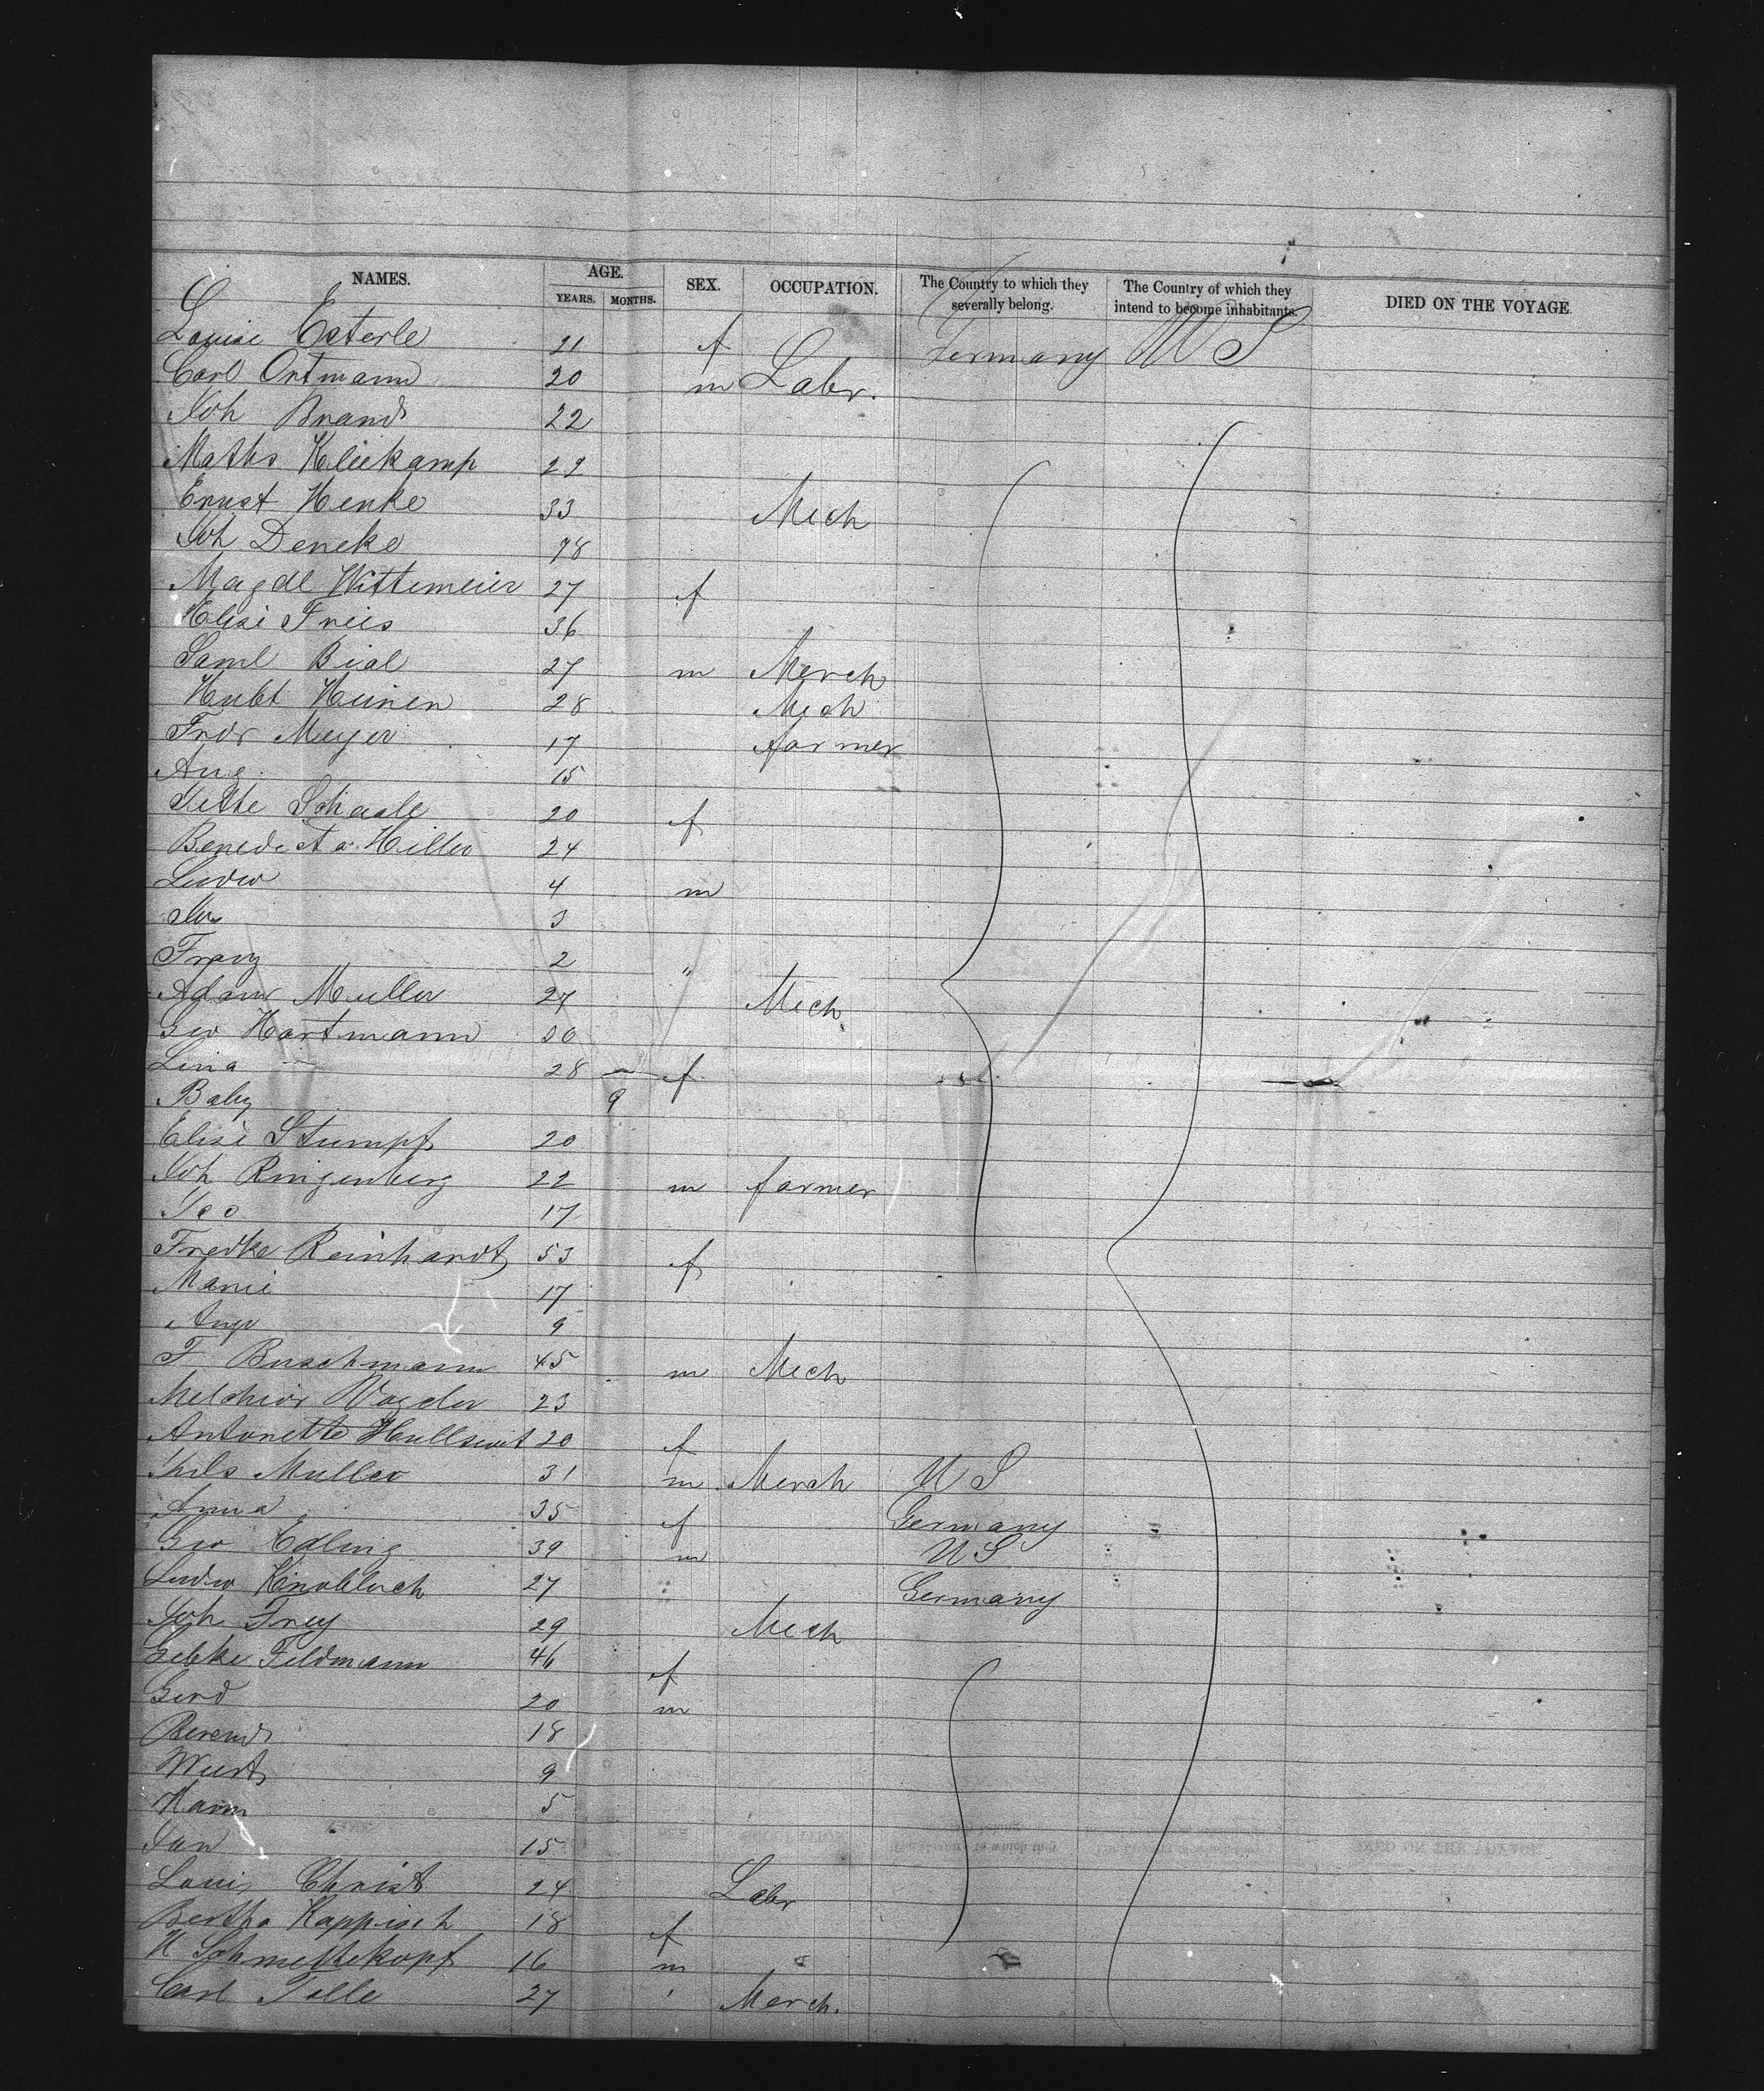 NAMES. AGE. SEX. OCCUPATION. The Country to which they severally belong. The Country of which they intend to become inhabitants. DIED ON THE VOYAGE.
YEARS. MONTHS.
Louise Esterle 21 f Germany U S
Carl Ortmann 20 m Labr.
Joh Brand 22
Maths Kliekamp 29
Ernst Henke 33 Mech
Joh Deneke 78
Magdl Wittemeier 27 f
Elise Freis 36
Saml Bial 27 m Merch
Hubt Heinen 28 Mech
Fredr Meyer 17 farmer
Aug. 15
Jette Schaale 20 f
Benedicta Hiller 24
Ludw 4 m
3
Franz 2 "
Adam Muller 27 Mech
Geo Hartmann 30
Lina 28 — f
Baby 9
Elise Stumpf 20
Joh Ringenberg 22 m farmer
Geo 17
Fredke Reinhardt 53 f
Marie 17
9
F Buschmann 45 m Mech
Melchior Wagder 23
Antonette 20 f
Muller 31 m Merch U S
Anna 35 f Germany
Geo Edling 39 m U S
Ludw Knobloch 27 Germany
Joh Frey 29 Mech
Gebke Feldmann 46 f
Gerd 20 m
Berend 18
9
Harm 5
Jan 15
Louis Christ 24 Labr
Bertha Kappisch 18 f
H Schmettekopf 16 m
Carl Tolle 27 ' Merch.